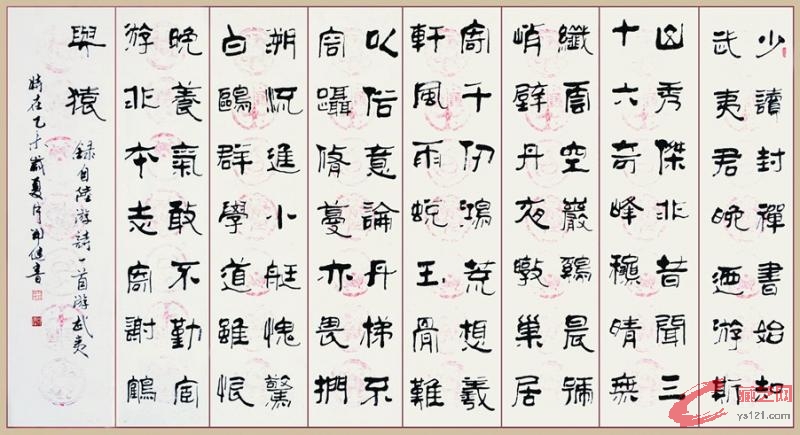 少讀封禪書始知
武夷君晚迺游斯
山秀傑非昔聞三
十六奇峰穐晴無
纖雲空巖鷄晨號
峭壁丹夜暾巢居
寄千仞鴻荒想羲
軒風雨蛻玉骨難
以俗意論丹梯不
容躡脩蔓亦畏捫
朔流進小艇愧驚
白鷗群學道雖恨
晚養氣敢不勤宦
游非本志寄謝鶴
與猿
錄自陸游詩一首游武夷
時在乙未歲夏月書
藏艺网
ys121.com